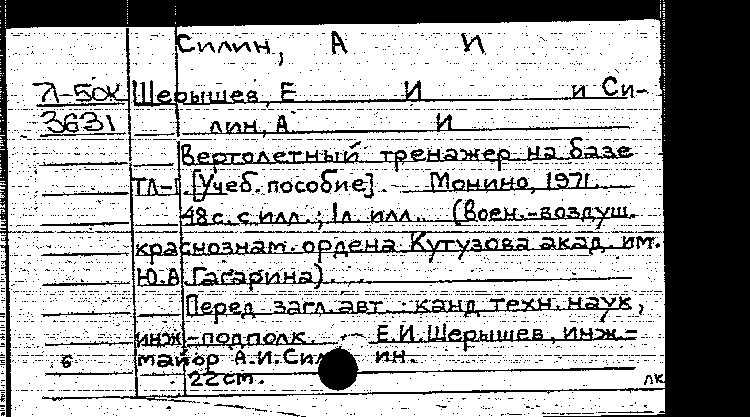 Силин, А И
Л-50К Шерышев, Е И и Си-
3631 лин, А И
Вертолетный тренажер на базе
ТЛ-1. [Учеб. пособие]. Монино, 1971.
48 с. с илл.; 1л илл. (Воен.-воздуш.
краснознам. ордена Кутузова акад. им.
Ю.А. Гагарина).
Перед загл. авт.: канд техн. наук,
инж-подполк. Е.И. Шерышев, инж-
6 майор А.И. Силин.
22 см. лк